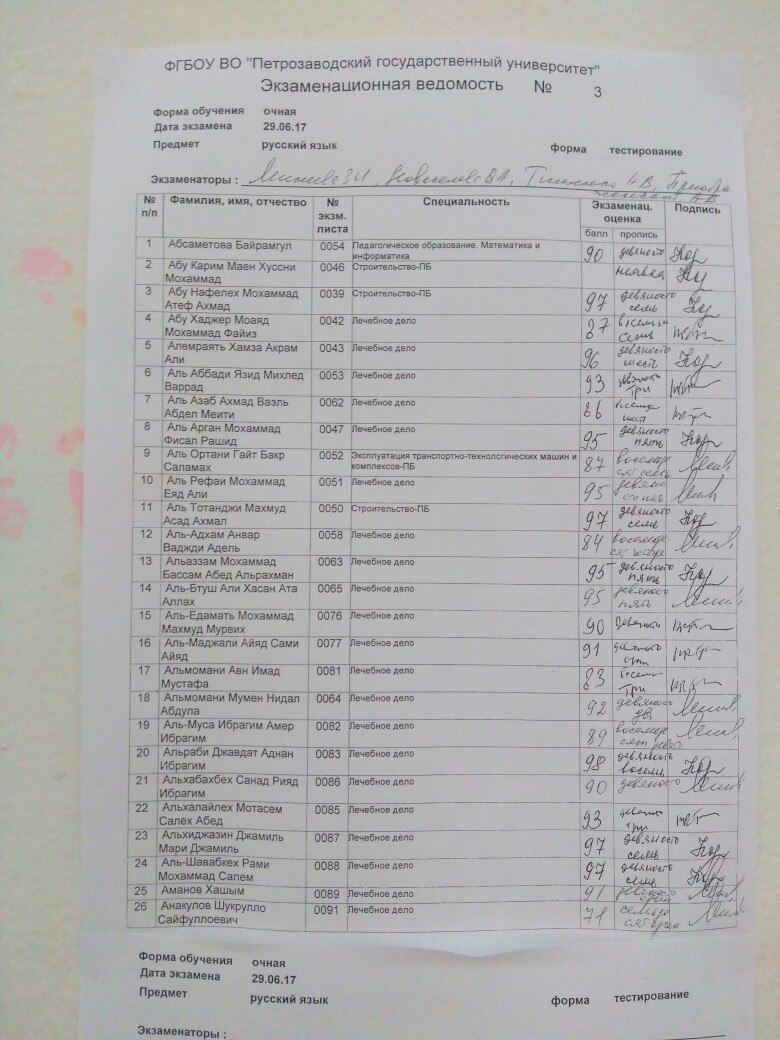 ФГБОУ ВО "Петрозаводский государственный университет"
Экзаменационная ведомость № 3
Форма обучения очная
Дата экзамена 29.06.17
Предмет русский язык форма тестирование
Экзаменаторы :
№ п/п Фамилия, имя, отчество № экзм. листа Специальность Экзаменац. оценка Подпись
балл пропись
1 Абсаметова Байрамгул 0054 Педагогическое образование. Математика и информатика 90 девяносто
2 Абу Карим Маен Хуссни Мохаммад 0046 Строительство-ПБ неявка
3 Абу Нафелех Мохаммад Атеф Ахмад 0039 Строительство-ПБ 97 девяносто семь
4 Абу Хаджер Моаяд Мохаммад Файиз 0042 Лечебное дело 87
5 Алемраять Хамза Акрам Али 0043 Лечебное дело 96 девяносто шесть
6 Аль Аббади Язид Михлед Варрад 0053 Лечебное дело 93
7 Аль Азаб Ахмад Ваэль Абдел Меити 0062 Лечебное дело 86
8 Аль Арган Мохаммад Фисал Рашид 0047 Лечебное дело 95 девяносто пять
9 Аль Ортани Гайт Бакр Саламах 0052 Эксплуатация транспортно-технологических машин и комплексов-ПБ 87 восемьдесят семь
10 Аль Рефаи Мохаммад Еяд Али 0051 Лечебное дело 95
11 Аль Тотанджи Махмуд Асад Ахмал 0050 Строительство-ПБ 97 девяносто семь
12 Аль-Адхам Анвар Ваджди Адель 0058 Лечебное дело 84
13 Альаззам Мохаммад Бассам Абед Альрахман 0063 Лечебное дело 95 девяносто пять
14 Аль-Бтуш Али Хасан Ата Аллах 0065 Лечебное дело 95 девяносто пять
15 Аль-Едамать Мохаммад Махмуд Мурвих 0076 Лечебное дело 90 девяносто
16 Аль-Маджали Айяд Сами Айяд 0077 Лечебное дело 91
17 Альмомани Авн Имад Мустафа 0081 Лечебное дело 83
18 Альмомани Мумен Нидал Абдула 0064 Лечебное дело 92 девяносто два
19 Аль-Муса Ибрагим Амер Ибрагим 0082 Лечебное дело 89
20 Альраби Джавдат Аднан Ибрагим 0083 Лечебное дело 98 девяносто восемь
21 Альхабахбех Санад Рияд Ибрагим 0086 Лечебное дело 90 девяносто
22 Альхалайлех Мотасем Салех Абед 0085 Лечебное дело 93
23 Альхиджазин Джамиль Мари Джамиль 0087 Лечебное дело 97 девяносто семь
24 Аль-Шавабкех Рами Мохаммад Салем 0088 Лечебное дело 97 девяносто семь
25 Аманов Хашым 0089 Лечебное дело 91 девяносто один
26 Анакулов Шукрулло Сайфуллоевич 0091 Лечебное дело 71
Форма обучения очная
Дата экзамена 29.06.17
Предмет русский язык форма тестирование
Экзаменаторы :